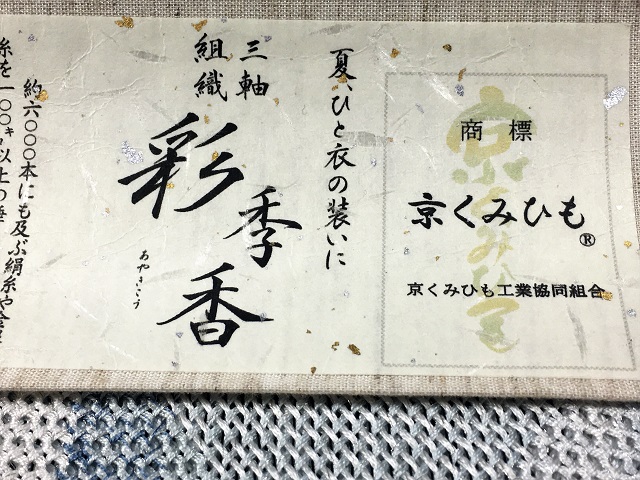 商標
京くみひも®
京くみひも工業協同組合
夏、ひと衣の装いに
三軸
組織
彩季香
あやきこう
約六〇〇〇本にも及ぶ絹糸や金
糸を一〇〇㌔以上の